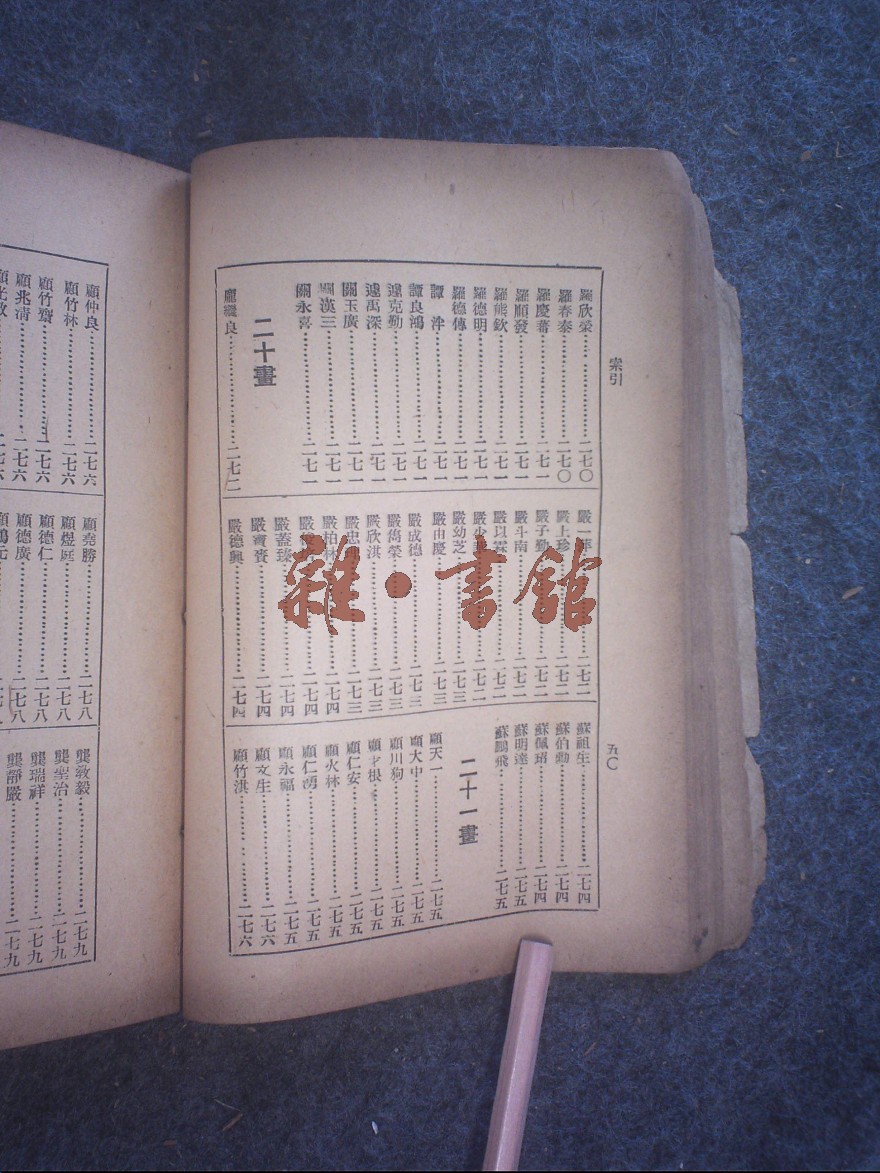 索引
五〇
羅欣榮……二七〇
羅春泰……二七〇
羅慶蕃……二七一
羅順發……二七一
羅熊欽……二七一
羅德明……二七一
羅德傳……二七一
譚泮……二七一
譚良鴻……二七一
邊克勤……二七一
邊萬深……二七一
關玉廣……二七一
關漢三……二七一
關永喜……二七一
二十畫
龐良……二七二
嚴一萍……二七二
嚴上珍……二七二
嚴子勤……二七二
嚴斗南……二七二
嚴以霖……二七二
嚴……二七二
嚴幼芝……二七三
嚴由慶……二七三
嚴成德……二七三
嚴儁榮……二七三
嚴欣淇……二七三
嚴忠……二七三
嚴柏林……二七四
嚴……二七四
嚴蓋臻……二七四
嚴寶賚……二七四
嚴德興……二七四
蘇祖生……二七四
蘇伯勳……二七四
蘇佩珺……二七四
蘇明達……二七五
蘇鵬飛……二七五
二十一畫
顧天一……二七五
顧大中……二七五
顧川狗……二七五
顧才根……二七五
顧仁安……二七五
顧火林……二七五
顧仁湧……二七五
顧永福……二七五
顧文生……二七六
顧竹淇……二七六
顧仲良……二七六
顧竹林……二七六
顧竹齋……二七六
顧兆清……二七六
顧……二七六
顧堯勝……二七八
顧煜廷……二七八
顧德仁……二七八
顧德廣……二七八
顧鴻元……二七八
龔敦毅……二七九
龔聖治……二七九
龔瑞祥……二七九
龔靜嚴……二七九
雜·書館